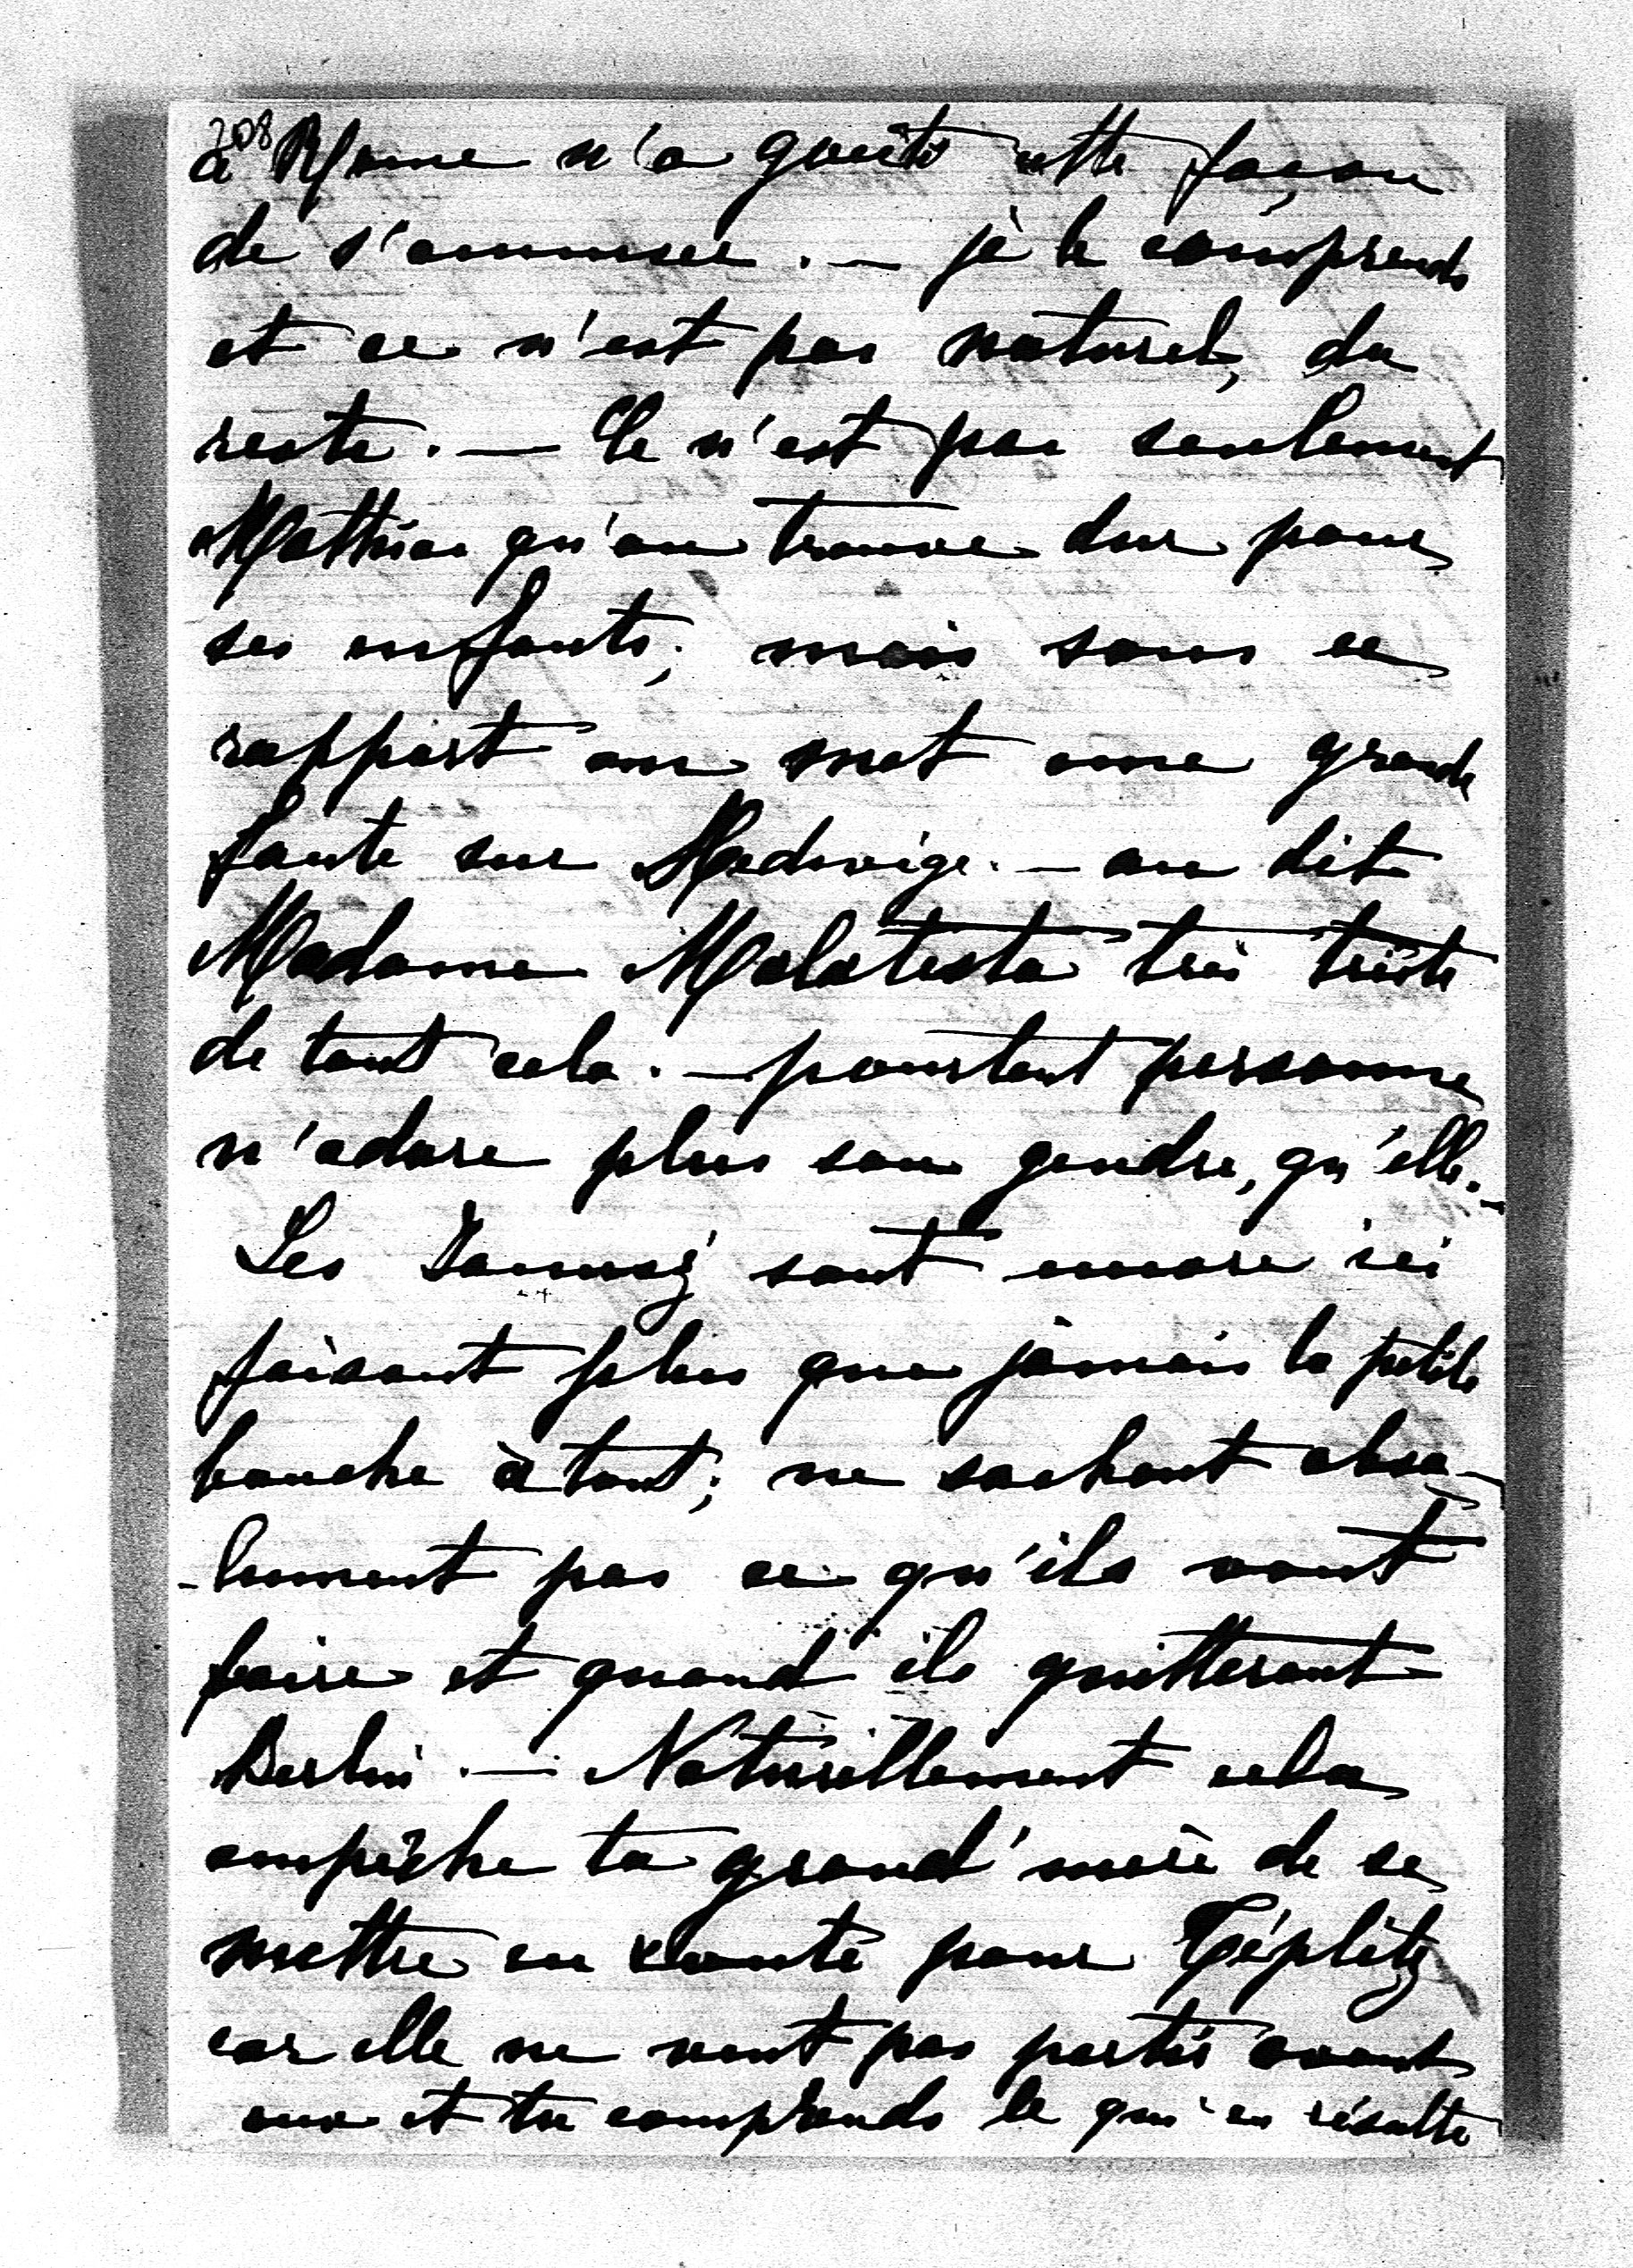 208
à Rome n'a goûté cette façon
de s'amuser. — je le comprends
et ce n'est pas naturel, du
reste. — Ce n'est pas seulement
Mathias qu'on trouve dur pour
ses enfants; mais sous ce
rapport on met une grande
faute sur Hedwige. — on dit
Madame Malatesta très triste
de tout cela. — pourtant personne
n'adore plus son gendre, qu'elle. —
Les sont encore ici
faisant plus que jamais la petite
bouche à tout; ne sachant abso-
-lument pas ce qu'ils vont
faire et quand ils quitteront
Berlin. — Naturellement cela
empêche ta grand'mère de se
mettre en route pour Téplitz
car elle ne veut pas partir avant
eux et tu comprends ce qui en résulte